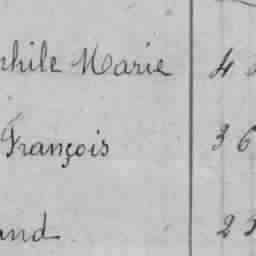 phile Marie 4
François 36
and 25